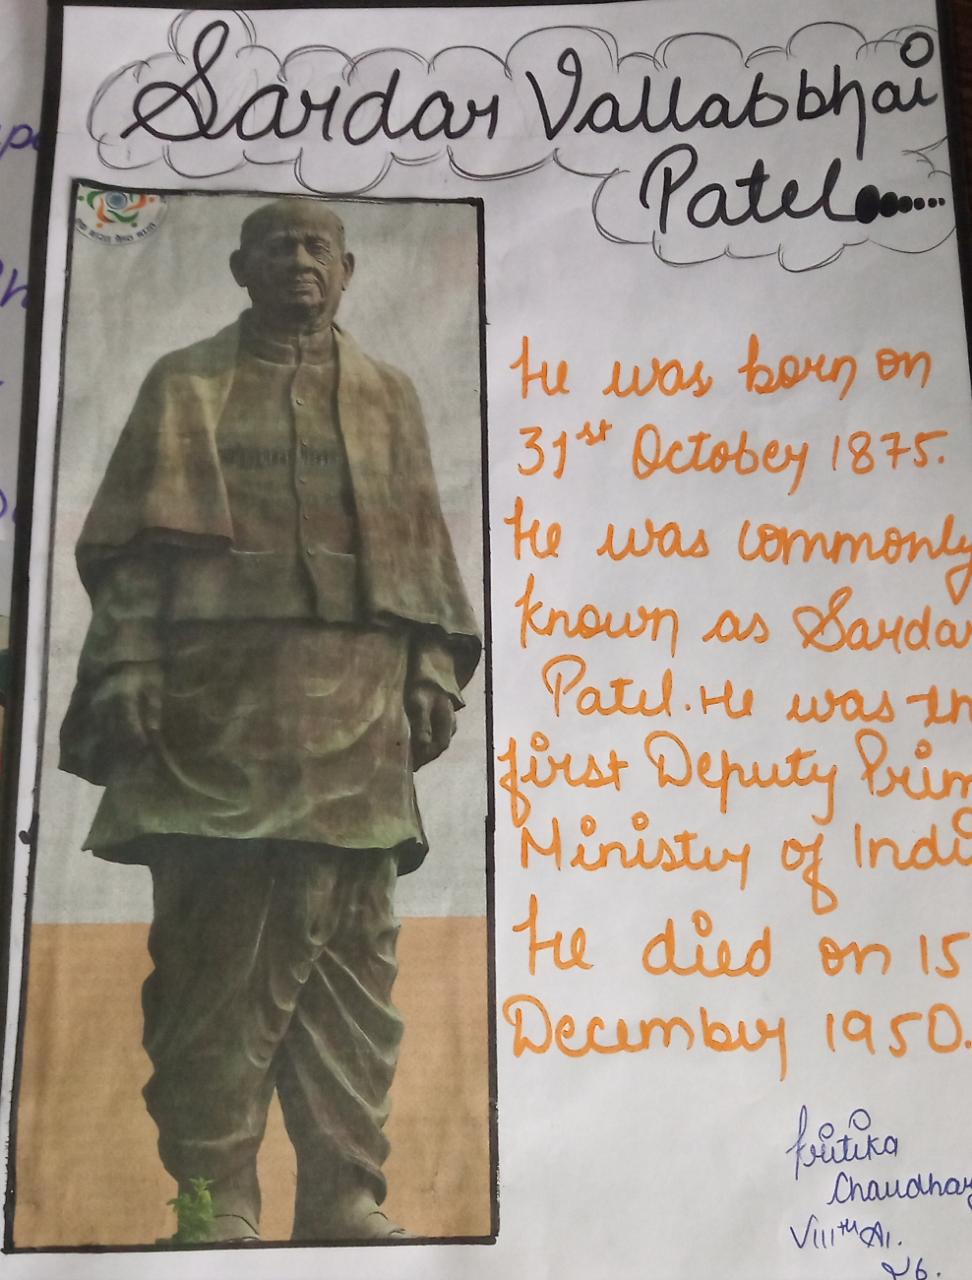 Sardar Vallabbhai
Patel......
He was born on
31st October 1875.
He was commonly
known as Sardar
Patel. He was th
first Deputy Prim
Ministry of Indi
He died on 15
December 1950.
Kritika
Chaudhary
VIIIth A1.
26.